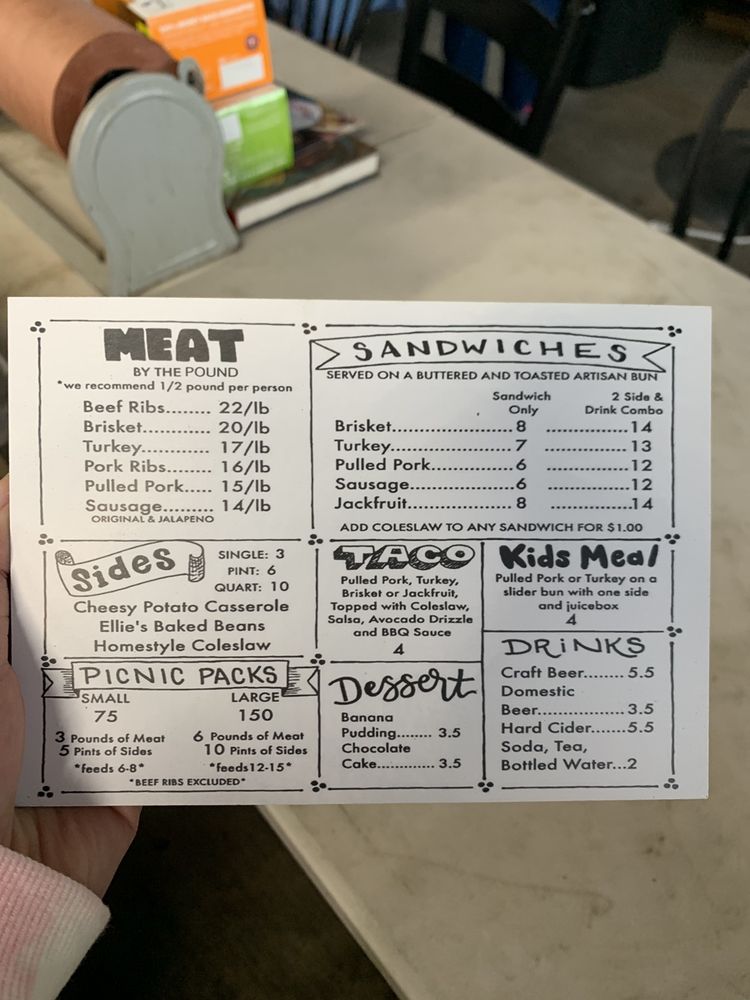 MEAT
BY THE POUND
*we recommend 1/2 pound per person
Beef Ribs........ 22/lb
Brisket............ 20/lb
Turkey............ 17/lb
Pork Ribs........ 16/lb
Pulled Pork..... 15/lb
Sausage.......... 14/lb
ORIGINAL & JALAPENO
SANDWICHES
SERVED ON A BUTTERED AND TOASTED ARTISAN BUN
Sandwich Only
2 Side & Drink Combo
Brisket..............................8 ..................14
Turkey..............................7 ..................13
Pulled Pork.....................6 ..................12
Sausage...........................6 ..................12
Jackfruit...........................8 ..................14
ADD COLESLAW TO ANY SANDWICH FOR $1.00
Sides
SINGLE: 3
PINT: 6
QUART: 10
Cheesy Potato Casserole
Ellie's Baked Beans
Homestyle Coleslaw
PICNIC PACKS
SMALL
75
3 Pounds of Meat
5 Pints of Sides
*feeds 6-8*
LARGE
150
6 Pounds of Meat
10 Pints of Sides
*feeds12-15*
*BEEF RIBS EXCLUDED*
TACO
Pulled Pork, Turkey,
Brisket or Jackfruit,
Topped with Coleslaw,
Salsa, Avocado Drizzle
and BBQ Sauce
4
Dessert
Banana
Pudding........ 3.5
Chocolate
Cake............. 3.5
Kids Meal
Pulled Pork or Turkey on a
slider bun with one side
and juicebox
4
DRiNKS
Craft Beer........ 5.5
Domestic
Beer..................3.5
Hard Cider.......5.5
Soda, Tea,
Bottled Water...2